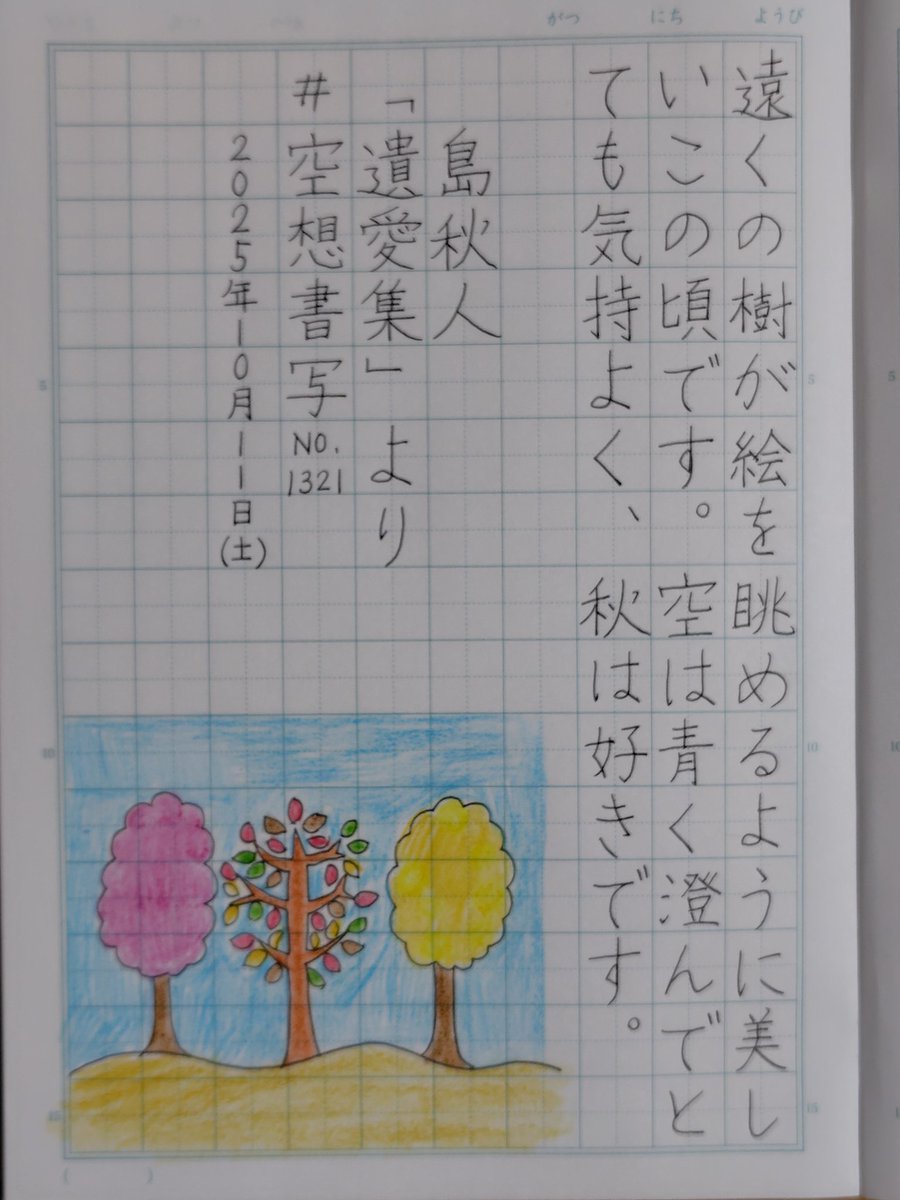 がつ にち ようび
遠くの樹が絵を眺めるように美し
いこの頃です。空は青く澄んでと
ても気持よく、秋は好きです。
島秋人
「遺愛集」より
#空想書写NO.1321
2025年10月11日(土)
5
10
15
5
10
15
5
10